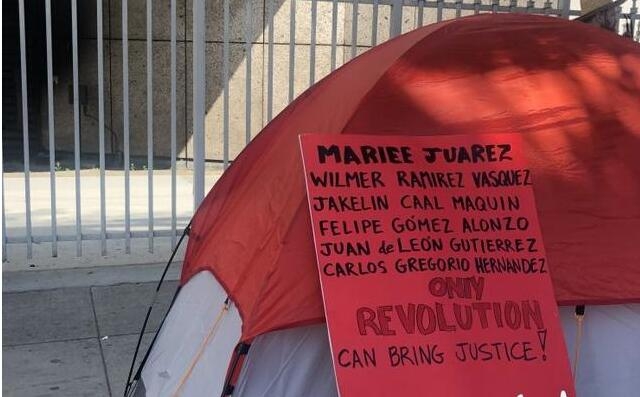 MARIEE JUAREZ
WILMER RAMIREZ VASQUEZ
JAKELIN CAAL MAQUIN
FELIPE GÓMEZ ALONZO
JUAN de LEÓN GUTIERREZ
CARLOS GREGORIO HERNANDEZ
ONLY
REVOLUTION
CAN BRING JUSTICE!